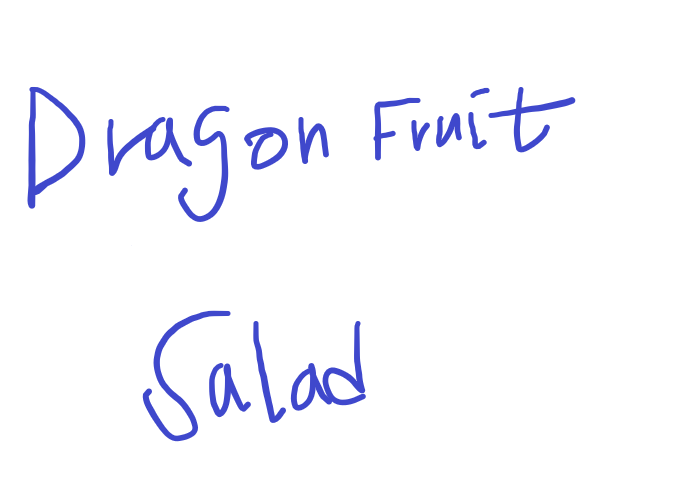 Dragon Fruit
Salad